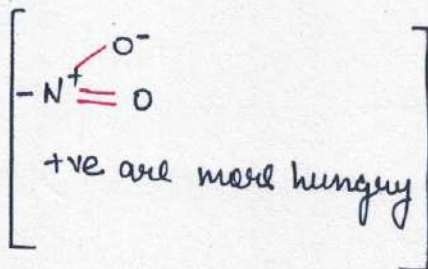 O⁻
- N⁺ = O
+ve are more hungry